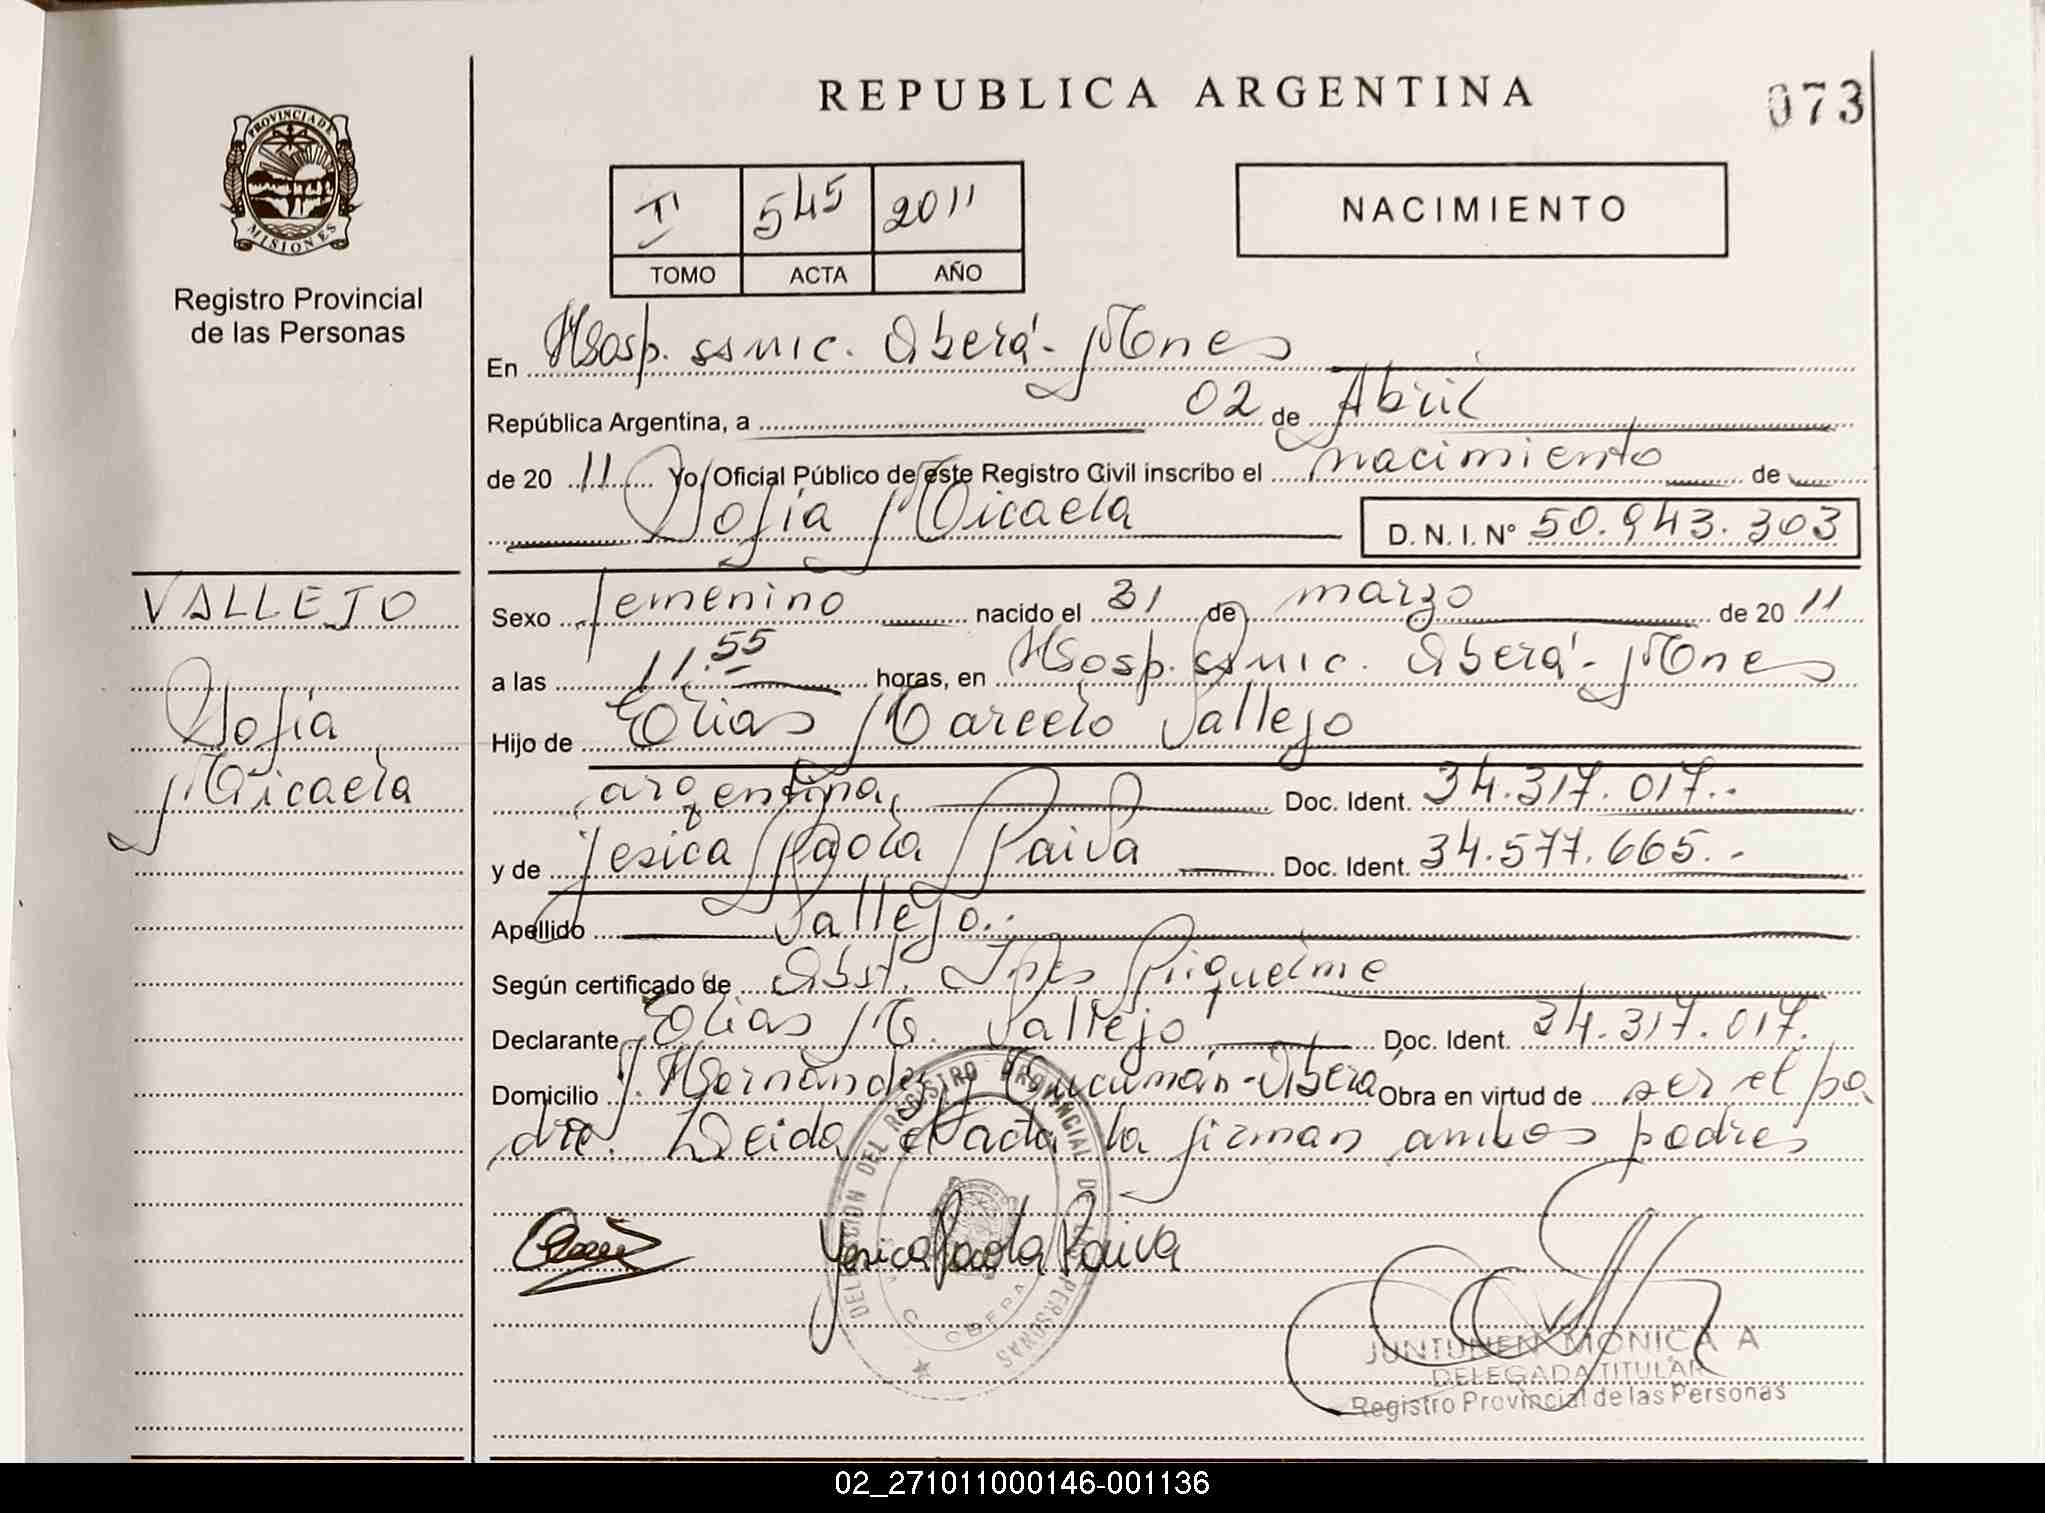 REPUBLICA ARGENTINA
073
PROVINCIA DE
MISIONES
Registro Provincial
de las Personas
545 2011
TOMO ACTA AÑO
NACIMIENTO
En Hosp. ssmic. Oberá - Mnes
República Argentina, a 02 de Abril
de 20 11 Yo, Oficial Público de este Registro Civil inscribo el nacimiento de
Sofía Micaela D. N. I. Nº 50.943.303
VALLEJO
Sofía
Micaela
Sexo femenino nacido el 31 de marzo de 20 11
a las 11.55 horas, en Hosp. ssmic. Oberá - Mnes
Hijo de Elias Marcelo Vallejo
argentina, Doc. Ident. 34.317.017.-
y de Jesica Paola Paiva Doc. Ident. 34.577.665.-
Apellido Vallejo.-
Según certificado de Obst. Inés Riquelme
Declarante Elias M. Vallejo Doc. Ident. 34.317.017.
Domicilio J. Hernández y Tucumán - Oberá Obra en virtud de ser el pa
dre. Leida el acta la firman ambos padres
Yesica Paola Paiva
DELEGACIÓN DEL REGISTRO PROVINCIAL DE LAS PERSONAS
OBERA
JUNTUNEN MONICA A
DELEGADA TITULAR
Registro Provincial de las Personas
02_271011000146-001136